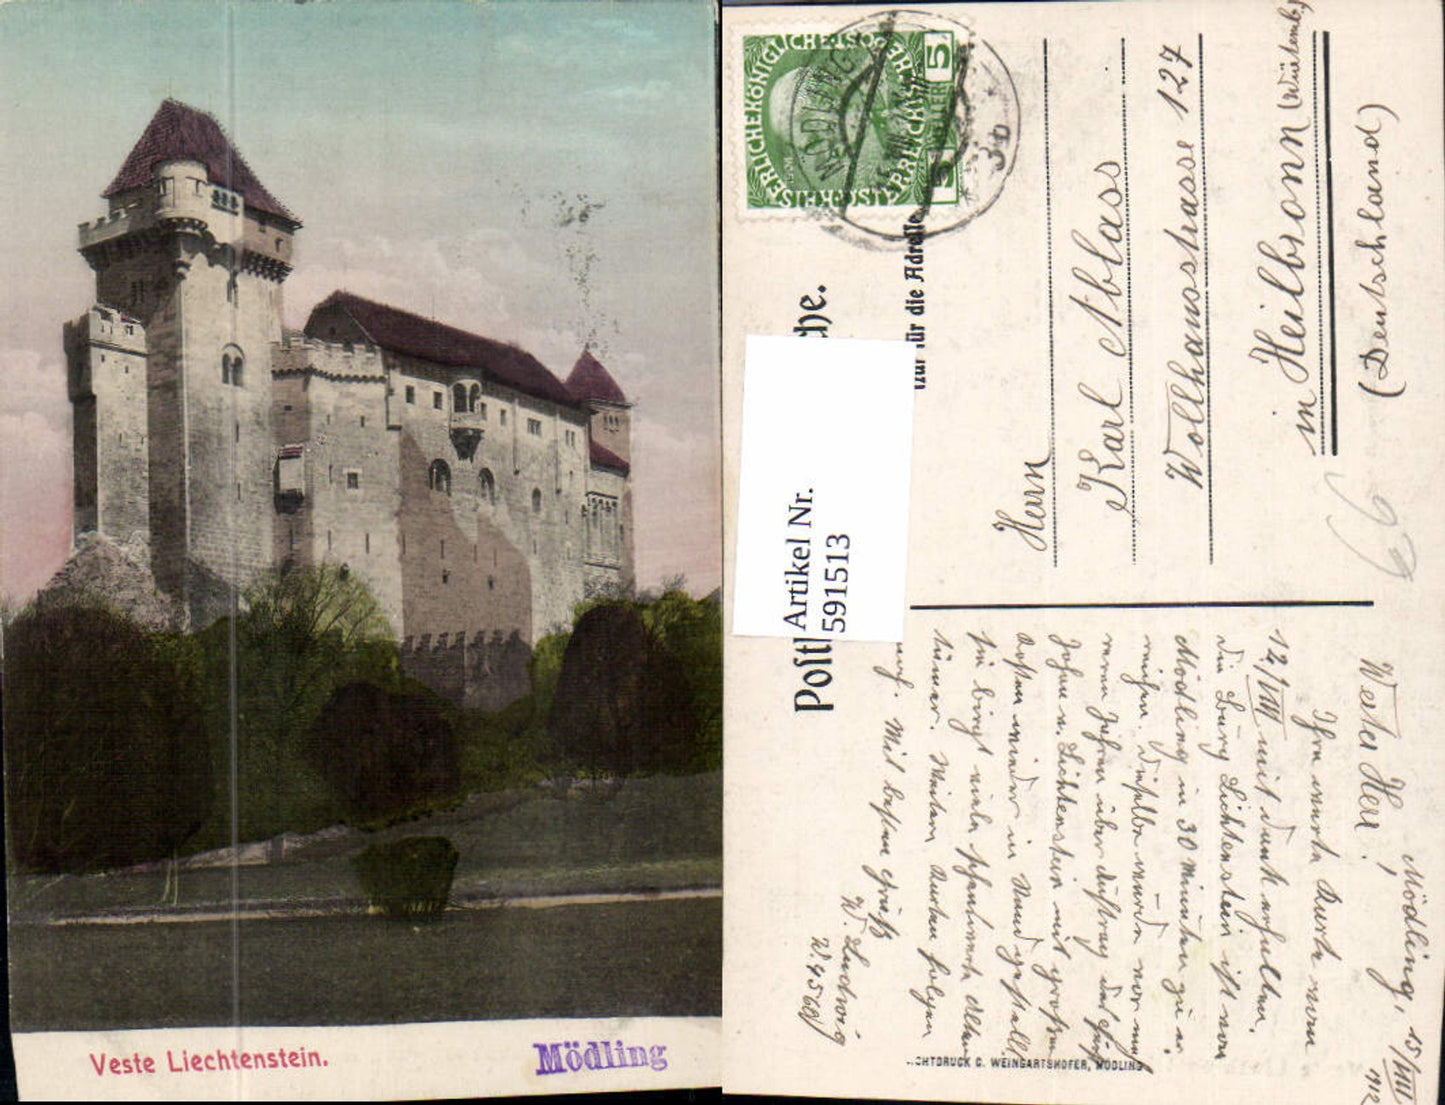 Veste Liechtenstein.
Mödling
KAISERLICHE KÖNIGLICHE ÖSTERREICHISCHE POST
5 HELLER 5
MÖDLING
Artikel Nr.
591513
Nur für die Adresse
Herrn
Karl Ablass
Wollhausstrasse 127
in Heilbronn (Würtembg
(Deutschland)
66
Mödling, 15/VIII 1912
Werter Herr!
Ihre werte Karte vom
12/VIII mit Dank erhalten.
Die Burg Lichtenstein ist von
Mödling in 30 Minuten zu er-
reichen. Dieselbe wurde vor
Jahren über Auftrag des
Johann v. Lichtenstein mit
wieder in Stand gestellt
Sie birgt viele
tümer. Weitere Karten folgen
nach. Mit besten Grüßen
W. Ludwig
LICHTDRUCK C. WEINGARTSHOFER, MÖDLING